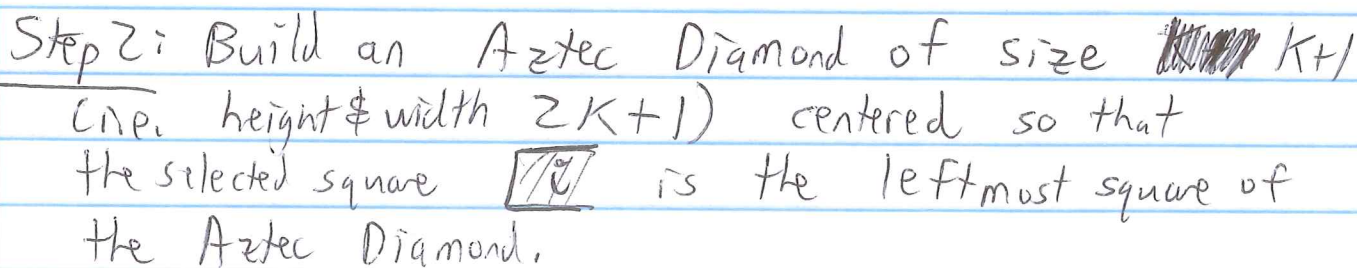 Step 2: Build an Aztec Diamond of size K+1
(i.e. height & width 2K+1) centered so that
the selected square is the leftmost square of
the Aztec Diamond.